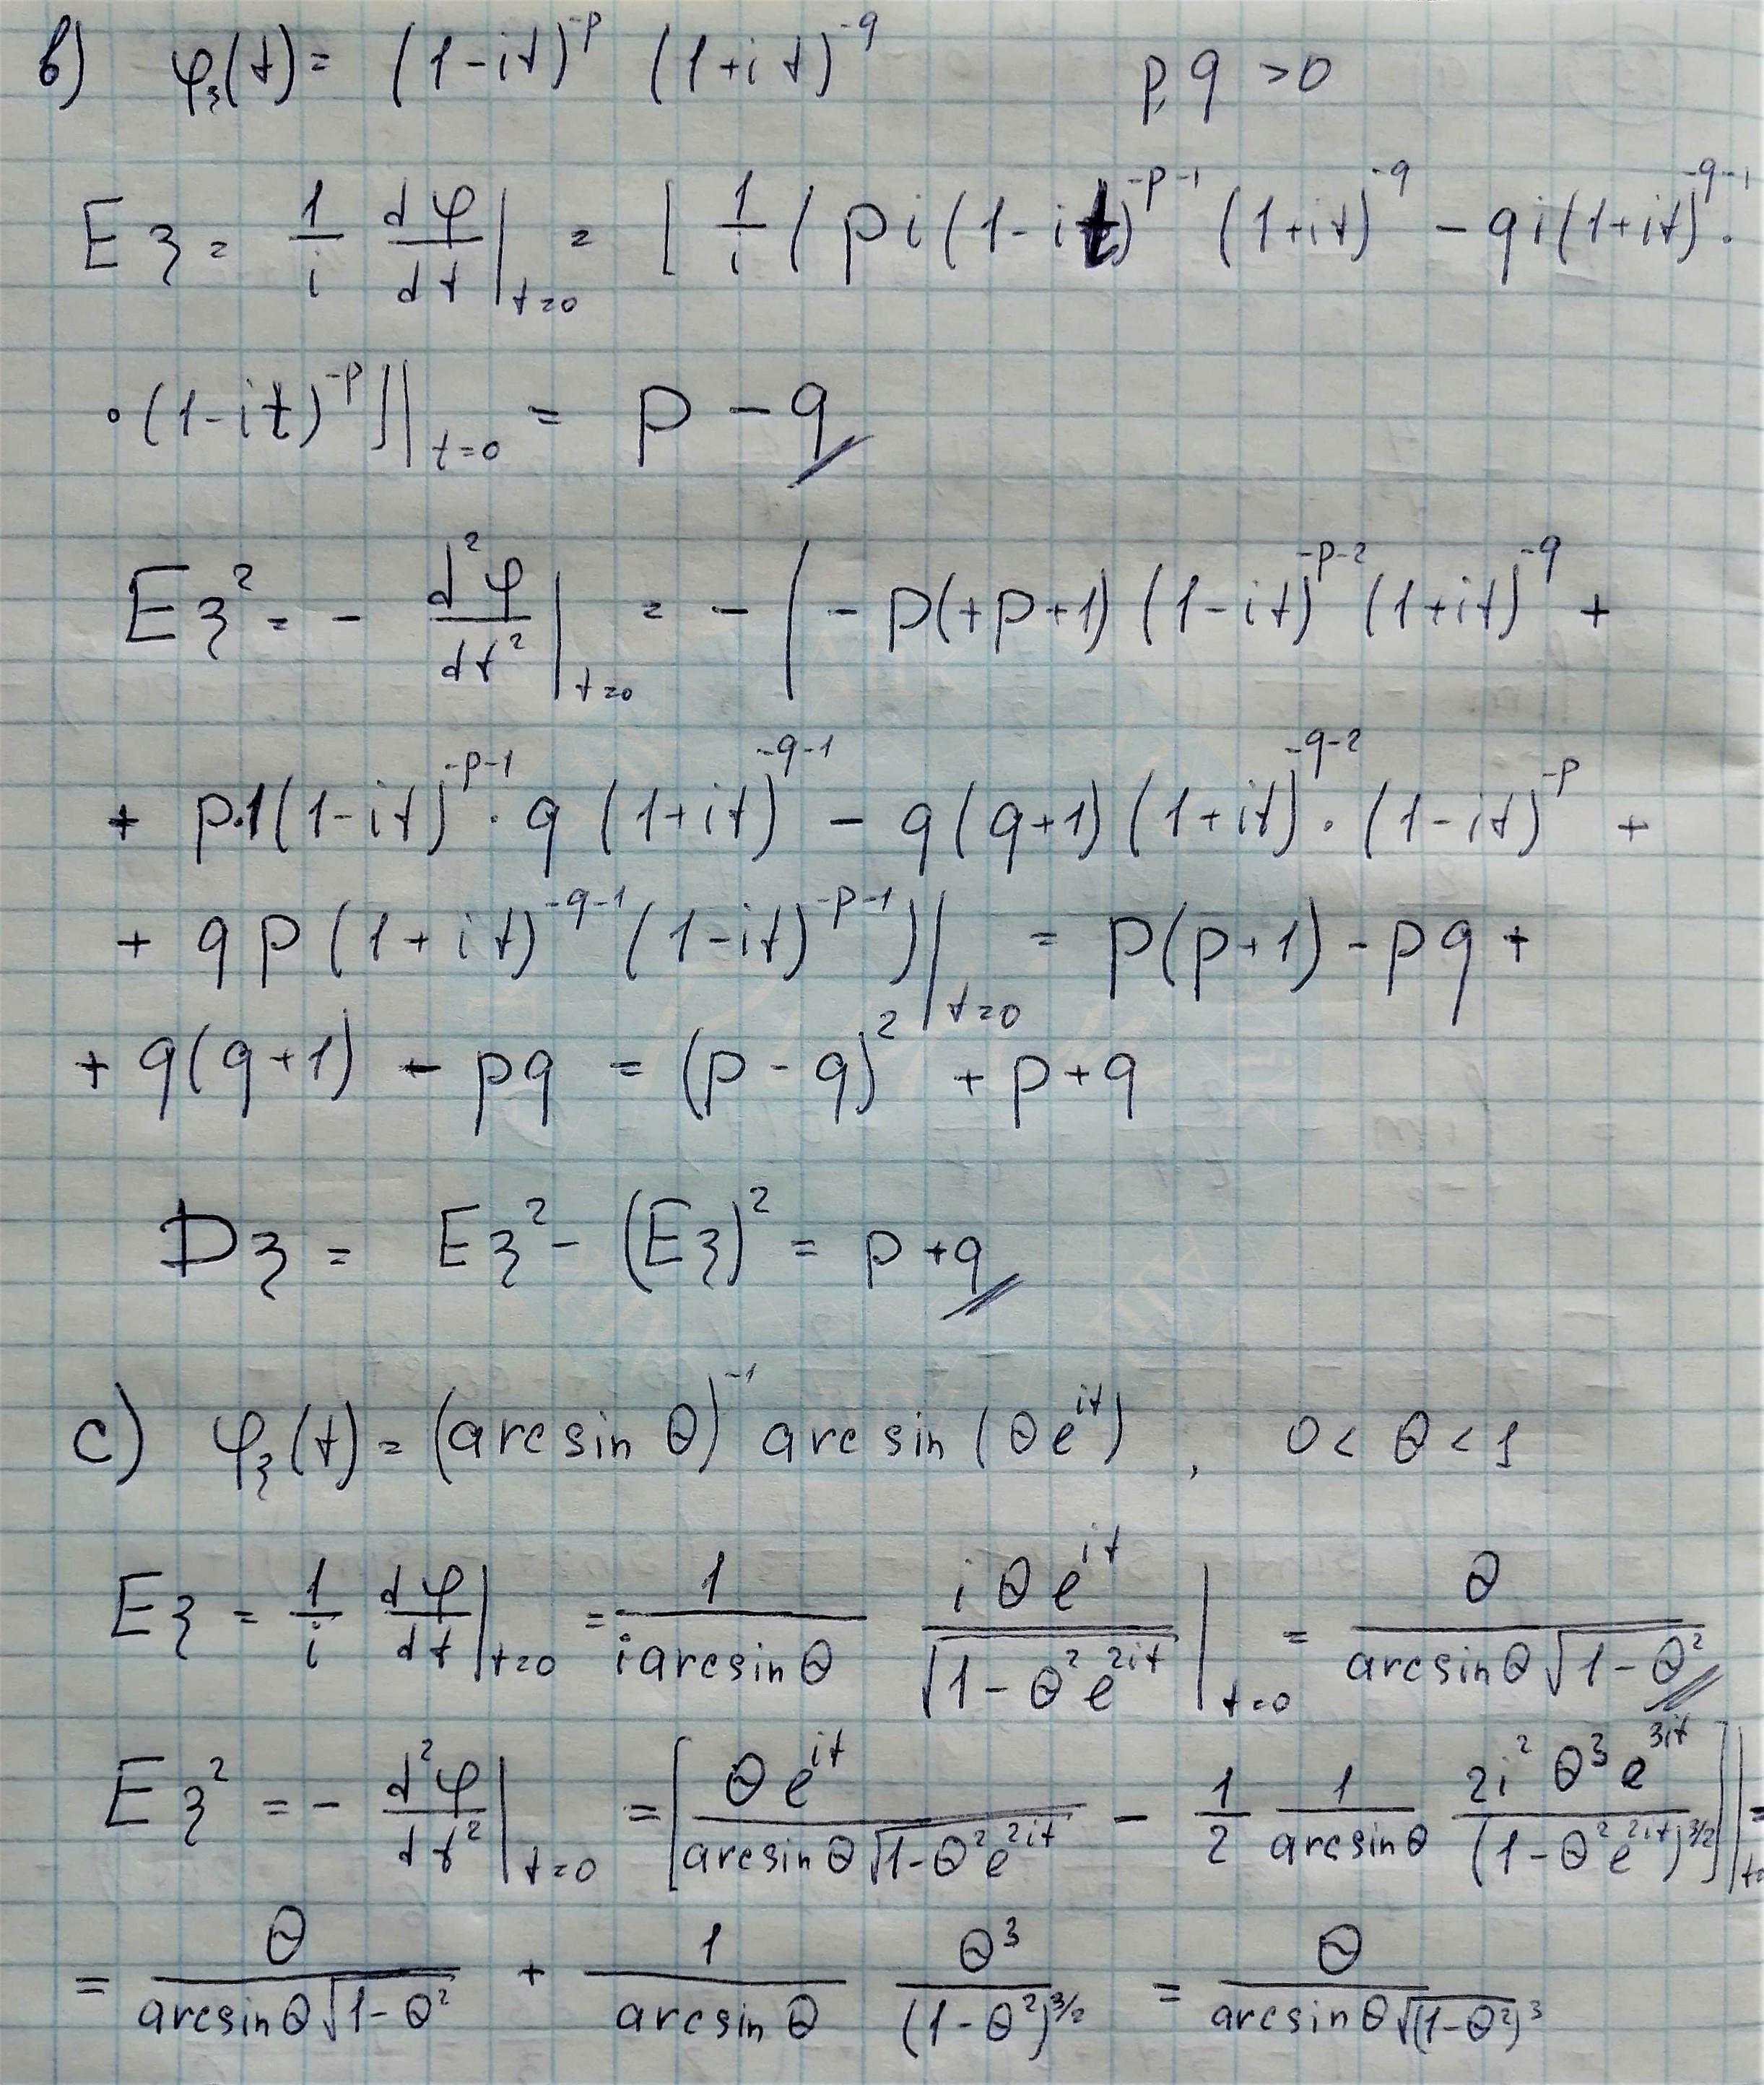 b) φ_ξ(t) = (1-it)^{-p} (1+it)^{-q}    p, q > 0
Eξ = \frac{1}{i} \frac{dφ}{dt}|_{t=0} = [ \frac{1}{i} ( pi(1-it)^{-p-1} (1+it)^{-q} - qi(1+it)^{-q-1} ·
· (1-it)^{-p} ]|_{t=0} = p - q
Eξ^2 = - \frac{d^2φ}{dt^2}|_{t=0} = - ( - p(+p+1) (1-it)^{-p-2} (1+it)^{-q} +
+ p·1(1-it)^{-p-1} · q (1+it)^{-q-1} - q(q+1) (1+it)^{-q-2} · (1-it)^{-p} +
+ qp(1+it)^{-q-1} (1-it)^{-p-1} )|_{t=0} = p(p+1) - pq +
+ q(q+1) - pq = (p-q)^2 + p+q
Dξ = Eξ^2 - (Eξ)^2 = p+q
c) φ_ξ(t) = (arcsin θ)^{-1} arcsin (θe^{it}) , 0 < θ < 1
Eξ = \frac{1}{i} \frac{dφ}{dt}|_{t=0} = \frac{1}{i arcsin θ} \frac{iθe^{it}}{\sqrt{1-θ^2e^{2it}}}|_{t=0} = \frac{θ}{arcsin θ \sqrt{1-θ^2}}
Eξ^2 = - \frac{d^2φ}{dt^2}|_{t=0} = [ \frac{θe^{it}}{arcsin θ \sqrt{1-θ^2e^{2it}}} - \frac{1}{2} \frac{1}{arcsin θ} \frac{2i^2 θ^3 e^{3it}}{(1-θ^2e^{2it})^{3/2}} ]| =
= \frac{θ}{arcsin θ \sqrt{1-θ^2}} + \frac{1}{arcsin θ} \frac{θ^3}{(1-θ^2)^{3/2}} = \frac{θ}{arcsin θ \sqrt{(1-θ^2)^3}}